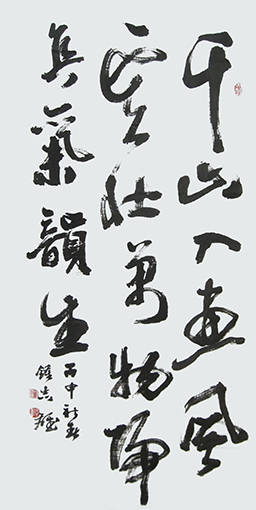 千山入畫風
雲壯萬物歸
真氣韻生
丙申新春